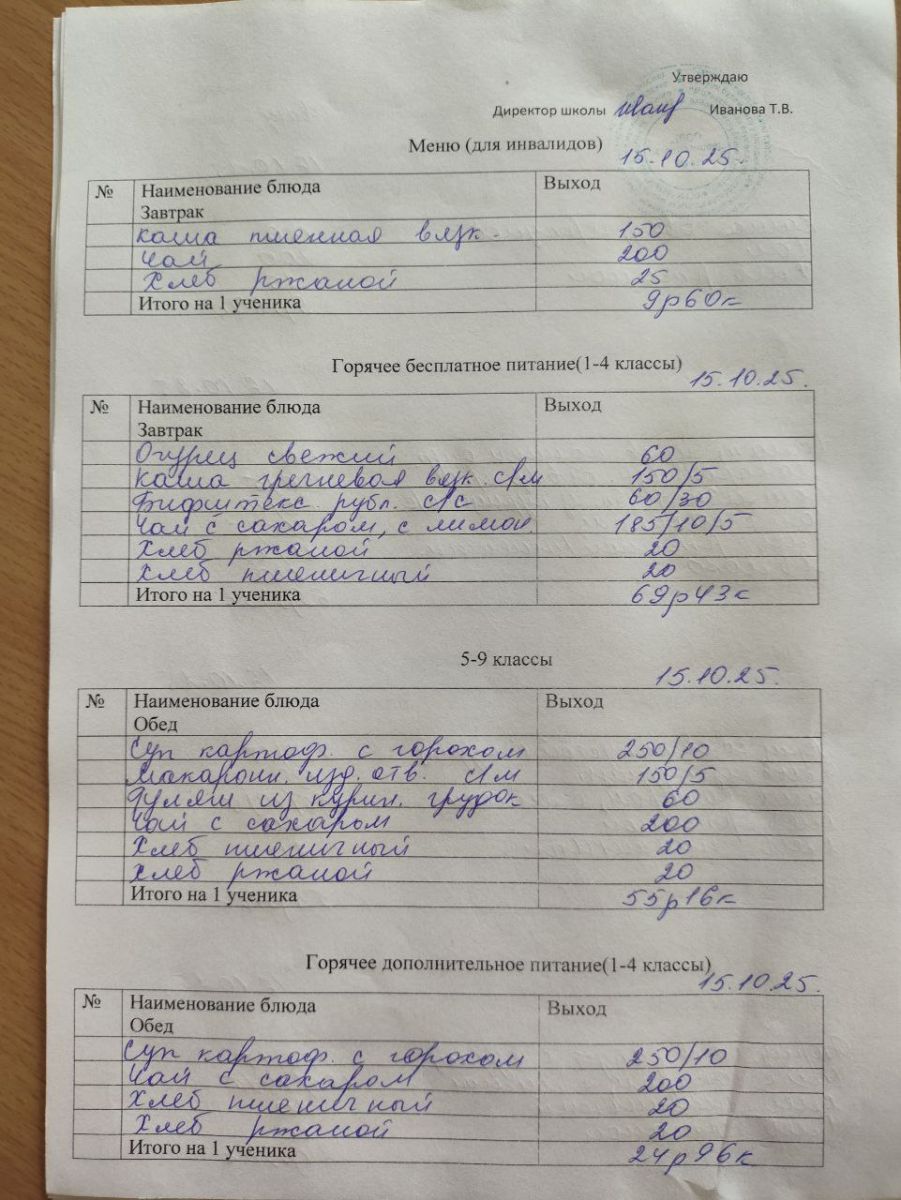 Утверждаю
Директор школы Иванова Т.В.
Меню (для инвалидов)
15.10.25.
№ Наименование блюда Выход
Завтрак
Каша пшенная вязк. 150
Чай 200
Хлеб ржаной 25
Итого на 1 ученика 9р60к
Горячее бесплатное питание(1-4 классы)
15.10.25.
№ Наименование блюда Выход
Завтрак
Огурец свежий 60
Каша гречневая вязк. с/м 150/5
Бифштекс рубл. с/с 60/30
Чай с сахаром, с лимон. 185/10/5
Хлеб ржаной 20
Хлеб пшеничный 20
Итого на 1 ученика 69р43к
5-9 классы
15.10.25.
№ Наименование блюда Выход
Обед
Суп картоф. с горохом 250/10
Макарон. изд. отв. с/м 150/5
Гуляш из курин. грудок 60
Чай с сахаром 200
Хлеб пшеничный 20
Хлеб ржаной 20
Итого на 1 ученика 55р16к
Горячее дополнительное питание(1-4 классы)
15.10.25.
№ Наименование блюда Выход
Обед
Суп картоф. с горохом 250/10
Чай с сахаром 200
Хлеб пшеничный 20
Хлеб ржаной 20
Итого на 1 ученика 24р96к